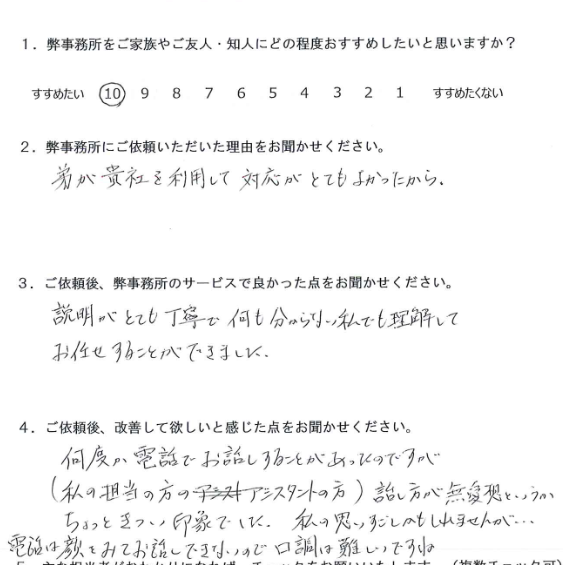 1．弊事務所をご家族やご友人・知人にどの程度おすすめしたいと思いますか？
すすめたい 10 9 8 7 6 5 4 3 2 1 すすめたくない
2．弊事務所にご依頼いただいた理由をお聞かせください。
弟が貴社を利用して対応がとてもよかったから。
3．ご依頼後、弊事務所のサービスで良かった点をお聞かせください。
説明がとても丁寧で何も分からない私でも理解して
お任せすることができました。
4．ご依頼後、改善して欲しいと感じた点をお聞かせください。
何度か電話でお話しすることがあったのですが
(私の担当の方のアシスタントの方)話し方が無愛想というか
ちょっときつい印象でした。私の思いすごしかもしれませんが…
電話は顔をみてお話しできないので口調は難しいですね